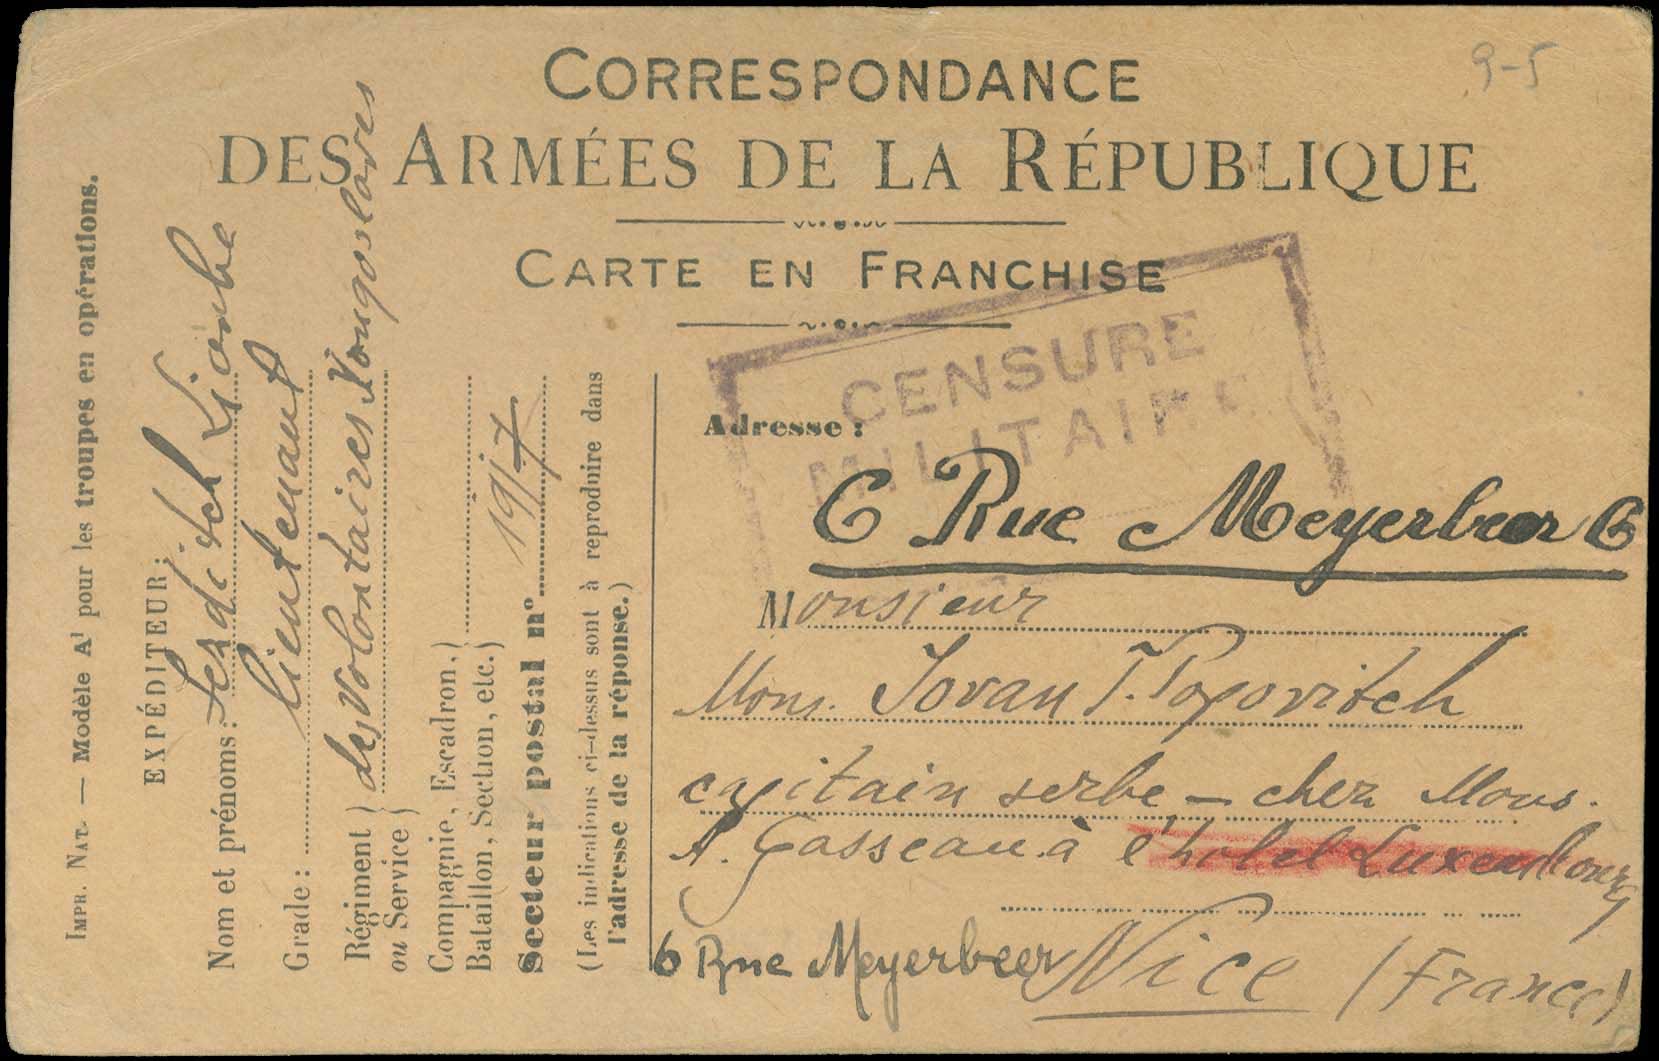 9-5
CORRESPONDANCE
DES ARMÉES DE LA RÉPUBLIQUE
CARTE EN FRANCHISE
CENSURE
MILITAIRE
IMPR. NAT. — Modèle A¹ pour les troupes en opérations.
EXPÉDITEUR:
Nom et prénoms:
Grade: lieutenant
Régiment ou Service } des volontaires Yougoslaves
Compagnie, Escadron,
Bataillon, Section, etc. }
Secteur postal n° 1917
(Les indications ci-dessus sont à reproduire dans
l'adresse de la réponse.)
Adresse:
6 Rue Meyerbeer 6
Monsieur
Mons. Jovan T. Popovitch
capitain serbe – chez Mons.
A. Gasseau à l'hotel Luxembourg
6 Rue Meyerbeer Nice (France)